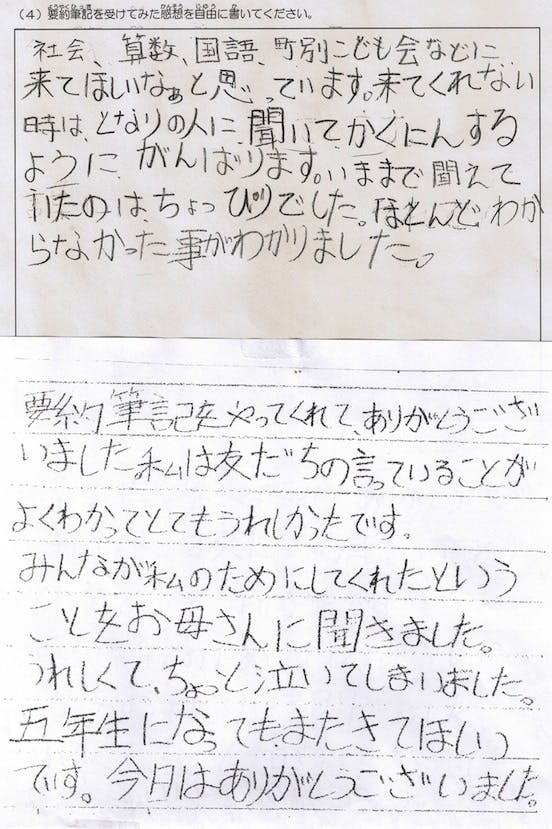 （4）要約筆記を受けてみた感想を自由に書いてください。
社会、算数、国語、町別こども会などに
来てほしいなぁと思っています。来てくれない
時は、となりの人に、聞いてかくにんする
ように、がんばります。いままで聞えて
いたのは、ちょっぴりでした。ほとんどわか
らなかった事がわかりました。
要約筆記をやってくれて、ありがとうござ
いました。私は友だちの言っていることが
よくわかってとてもうれしかったです。
みんなが私のためにしてくれたという
ことをお母さんに聞きました。
うれしくて、ちょっと泣いてしまいました。
五年生になっても、またきてほしい
です。今日はありがとうございました。